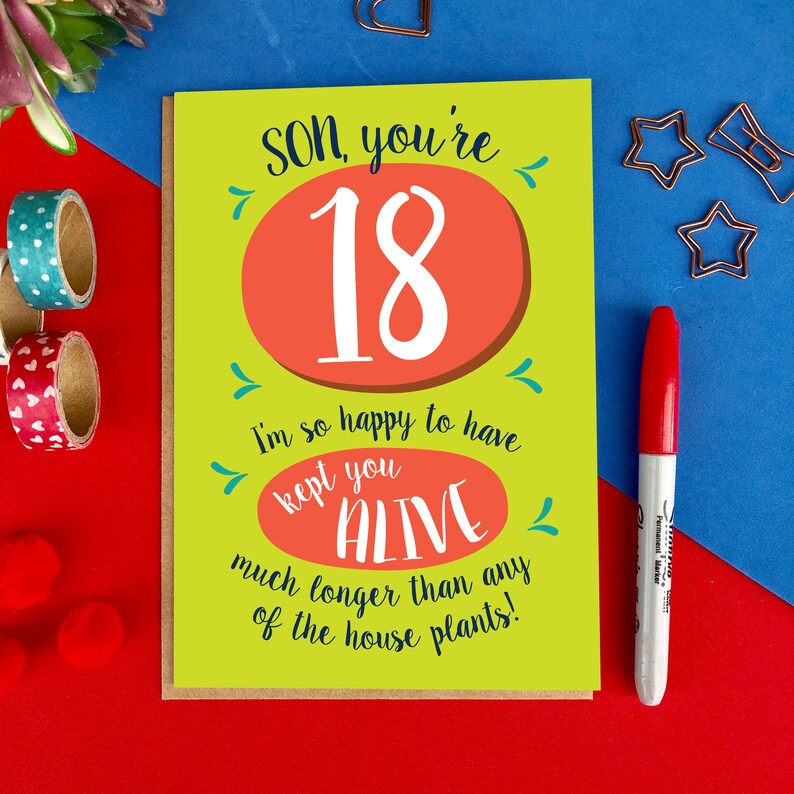 SON, you're
18
I'm so happy to have
kept you
ALIVE
much longer than any
of the house plants!
Sharpie
Permanent Marker